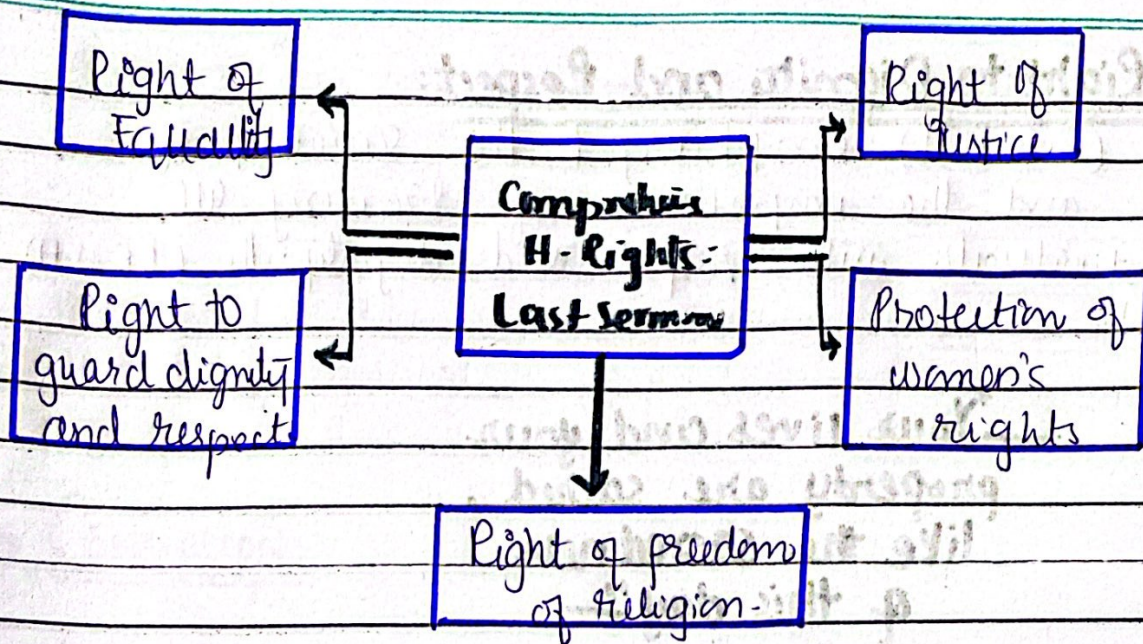 Right of
Equality
Right of
Justice
Comprehens
H-Rights:
Last Sermon
Right to
guard dignity
and respect.
Protection of
women's
rights
Right of freedom
of religion-